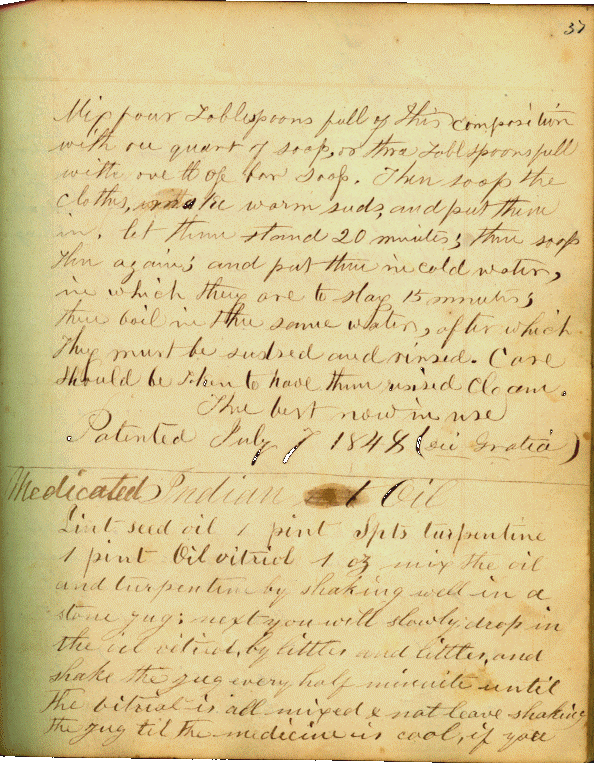 37
Mix four Tablespoons full of this composition
with one quart of soap, or three Tablspoonsfull
with one lb of bar soap. Then soap the
clothes, make warm suds, and put them
in. let them stand 20 minutes; then soap
then again; and put them in cold water,
in which they are to stay 15 minutes;
then boil in the same water, after which
They must be sudsed and rinsed. Care
should be taken to have them rinsed Clean.
The best now in use
Patented July 7 1848 (
Medicated Indian Oil
Lint seed oil 1 pint Spts turpentine
1 pint Oil vitriol 1 oz mix the oil
and turpentine by shaking well in a
stone jug; next you will slowly drop in
the oil vitriol, by littles and littles, and
shake the jug every half minuite until
the vitriol is all mixed & not leave shaking
the jug til the medicine is cool, if you